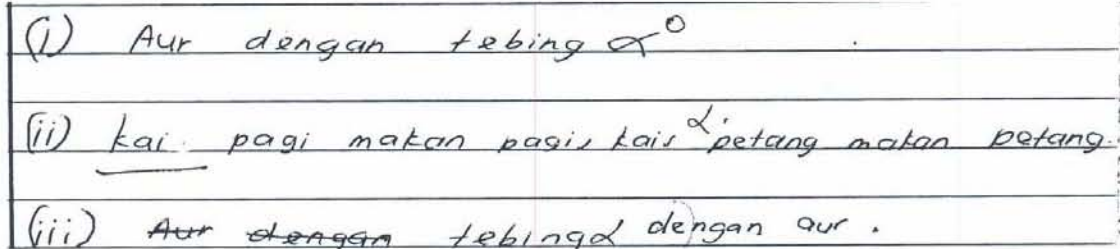 (i) Aur dengan tebing
(ii) kai pagi makan pagi, kais petang makan petang.
(iii) Aur dengan tebing dengan aur.